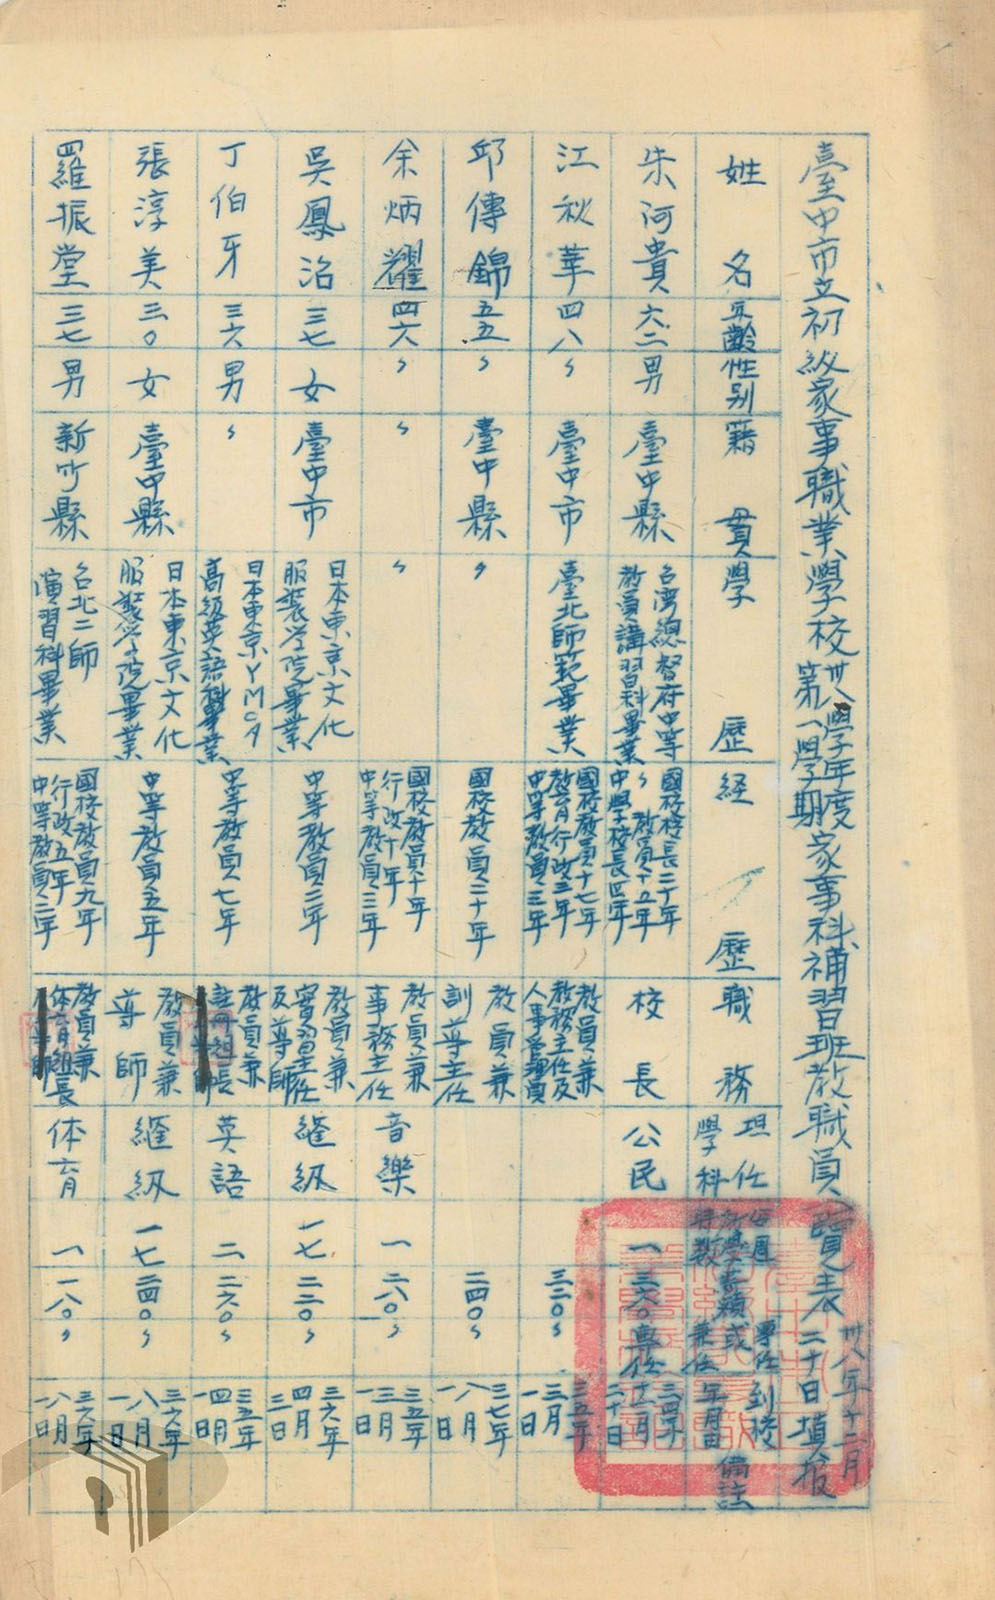 臺中市立初級家事職業學校卅八學年度第一學期家事科補習班教職員一覽表 卅八年十二月二十日填報
姓名 年齡 性別 籍貫 學歷 經歷 職務 担任學科 每週時數 薪額 專任或兼任 到校年月日 備註
朱阿貴 六二 男 臺中縣 台湾總督府中等教員講習科畢業 國校校長二十年 〃教員十五年 中學校長四年 校長 公民 一 三六〇 專任 三四年十二月二十日
江秋華 四八 〃 臺中市 臺北師範畢業 國校教員十七年 教育行政三年 中等教員三年 教員兼教務主任及人事管理員 三三〇 〃 三五年三月一日
邱傳錦 五五 〃 臺中縣 〃 國校教員二十年 教員兼訓導主任 二四〇 〃 三七年八月一日
余炳耀 四六 〃 〃 〃 國校教員十年 行政十年 中等教員三年 教員兼事務主任 音樂 一 二八〇 〃 三五年三月一日
吳鳳治 三七 女 臺中市 日本東京文化服裝学院畢業 中等教員三年 教員兼實習主任及導師 縫級 一七 二二〇 〃 三六年四月三日
丁伯牙 三六 男 〃 日本東京YMCA高級英語科畢業 中等教員七年 教員兼註冊組長 英語 二 二六〇 〃 三五年四月一日
張淳美 三〇 女 臺中縣 日本東京文化服裝学院畢業 中等教員五年 教員兼導師 縫級 一七 二四〇 〃 三六年八月一日
羅振堂 三七 男 新竹縣 台北二師演習科畢業 國校教員九年 行政五年 中等教員二年 教員兼体育組長 体育 一 一八〇 〃 三六年八月一日